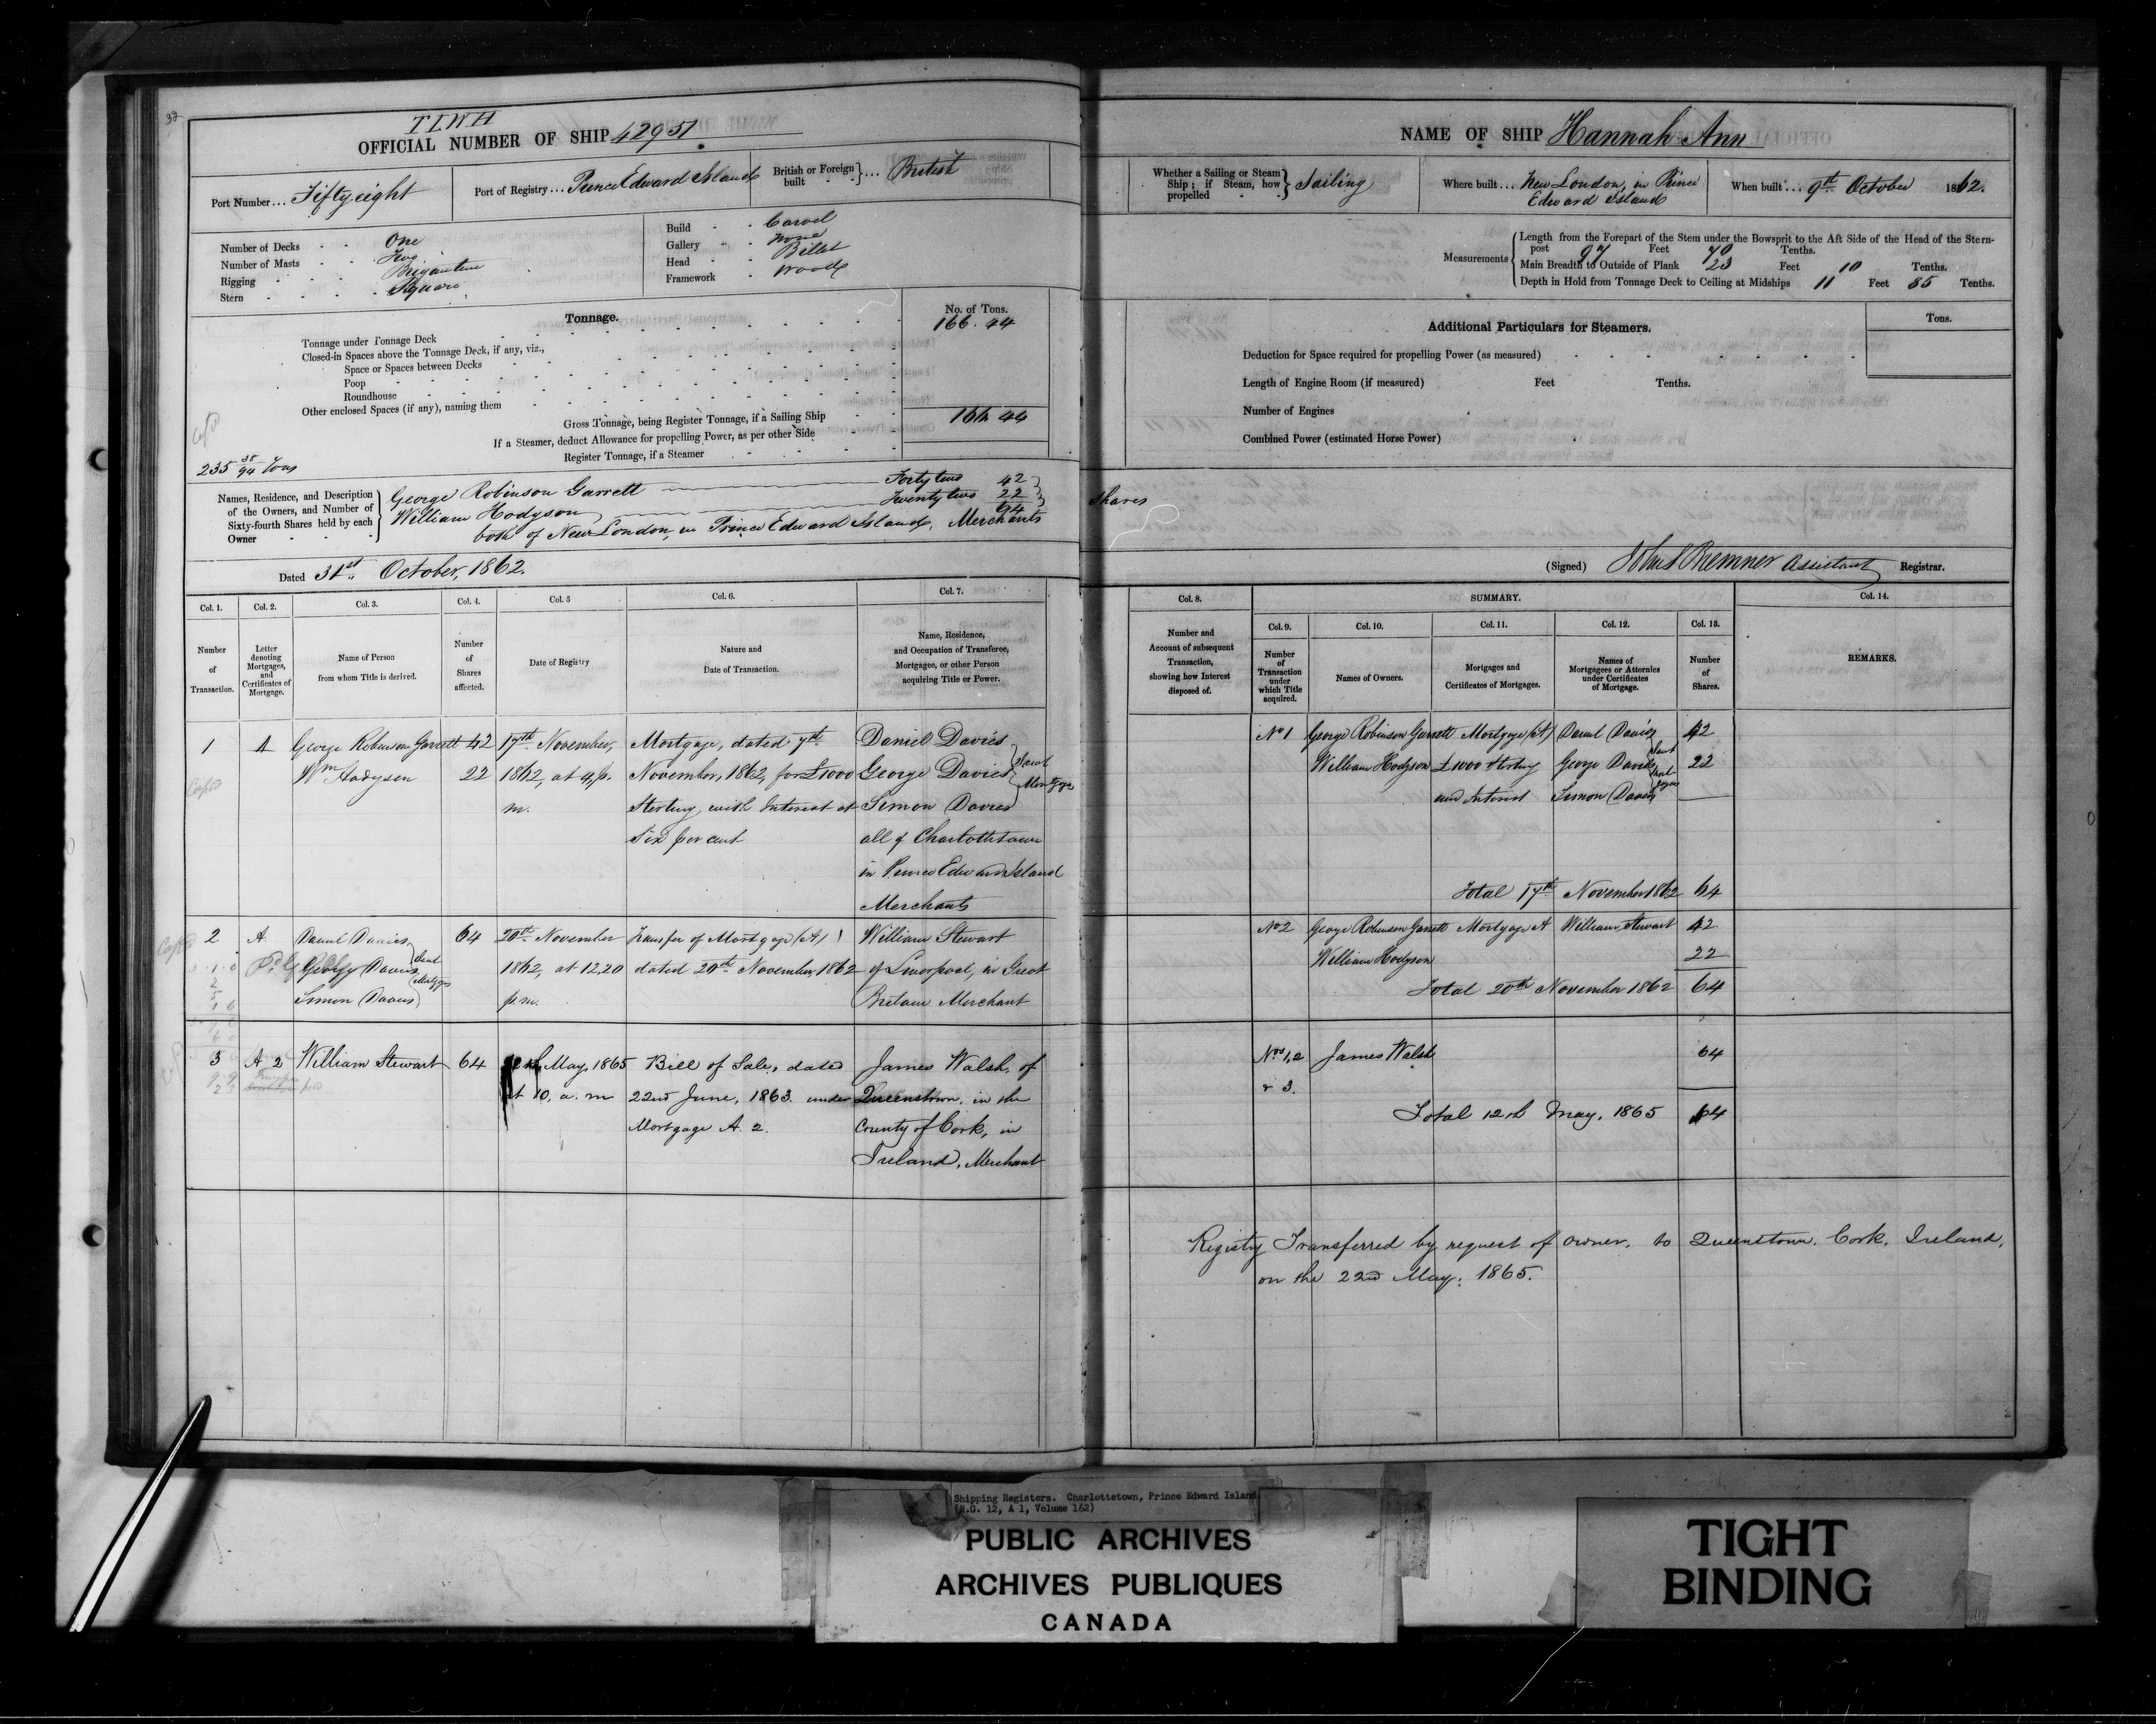 TLWH
OFFICIAL NUMBER OF SHIP 42951
Port Number... Fiftyeight
Port of Registry... Prince Edward Island
British or Foreign built }... British
Number of Decks One
Number of Masts Two
Rigging Brigantine
Stern Square
Build Carvel
Gallery None
Head Billet
Framework Wood
Tonnage.
No. of Tons.
Tonnage under Tonnage Deck 166.44
Closed-in Spaces above the Tonnage Deck, if any, viz.,
Space or Spaces between Decks
Poop
Roundhouse
Other enclosed Spaces (if any), naming them
Gross Tonnage, being Register Tonnage, if a Sailing Ship 166 44
If a Steamer, deduct Allowance for propelling Power, as per other Side
Register Tonnage, if a Steamer
235 38/94 Tons
Names, Residence, and Description of the Owners, and Number of Sixty-fourth Shares held by each Owner
George Robinson Garrett Forty two 42
William Hodgson Twenty two 22
64
both of New London, in Prince Edward Island, Merchants
Dated 31st October, 1862.
Col. 1. Col. 2. Col. 3. Col. 4. Col. 5 Col. 6. Col. 7.
Number of Transaction.
Letter denoting Mortgages, and Certificates of Mortgage.
Name of Person from whom Title is derived.
Number of Shares affected.
Date of Registry
Nature and Date of Transaction.
Name, Residence, and Occupation of Transferee, Mortgagee, or other Person acquiring Title or Power.
1 A George Robinson Garrett 42 17th November, Mortgage, dated 7th Daniel Davies
Wm Hodgson 22 1862, at 4, p. November, 1862, for £1000 George Davies Joint
m. Sterling, with Interest at Simon Davies Mortgagees
Six per cent all of Charlottetown
in Prince Edward Island
Merchants
2 A. Daniel Davies 64 20th November Transfer of Mortgage (A) William Stewart
George Davies Joint Mortgagees 1862, at 12.20 dated 20th November 1862 of Liverpool, in Great
Simon Davies p.m. Britain Merchant
3 A 2 William Stewart 64 12th May, 1865 Bill of Sale, dated James Walsh, of
at 10. a. m 22nd June, 1863. under Queenstown, in the
Mortgage A. 2. County of Cork, in
Ireland, Merchant
NAME OF SHIP Hannah Ann
Whether a Sailing or Steam Ship; if Steam, how propelled } Sailing
Where built... New London, in Prince
Edward Island
When built... 9th October 1862.
Measurements
Length from the Forepart of the Stem under the Bowsprit to the Aft Side of the Head of the Stern-
post 97 Feet 70 Tenths.
Main Breadth to Outside of Plank 23 Feet 10 Tenths.
Depth in Hold from Tonnage Deck to Ceiling at Midships 11 Feet 85 Tenths.
Additional Particulars for Steamers.
Tons.
Deduction for Space required for propelling Power (as measured)
Length of Engine Room (if measured) Feet Tenths.
Number of Engines
Combined Power (estimated Horse Power)
Shares
(Signed) John S Bremner Assistant Registrar.
Col. 8. SUMMARY. Col. 14.
Col. 9. Col. 10. Col. 11. Col. 12. Col. 13.
Number and Account of subsequent Transaction, showing how Interest disposed of.
Number of Transaction under which Title acquired.
Names of Owners.
Mortgages and Certificates of Mortgages.
Names of Mortgagees or Attornies under Certificates of Mortgage.
Number of Shares.
REMARKS.
No 1 George Robinson Garrett Mortgage (A) Daniel Davies 42
William Hodgson £1000 Sterling George Davies Joint 22
and Interest Simon Davies
Total 17th November 1862 64
No 2 George Robinson Garrett Mortgage A William Stewart 42
William Hodgson 22
Total 20th November 1862 64
Nos 1, 2 James Walsh 64
& 3.
Total 12th May, 1865 64
Registry Transferred by request of owner, to Queenstown. Cork, Ireland,
on the 22nd May, 1865.
Shipping Registers. Charlottetown, Prince Edward Island
(R.G. 12, A 1, Volume 162)
PUBLIC ARCHIVES
ARCHIVES PUBLIQUES
CANADA
TIGHT
BINDING